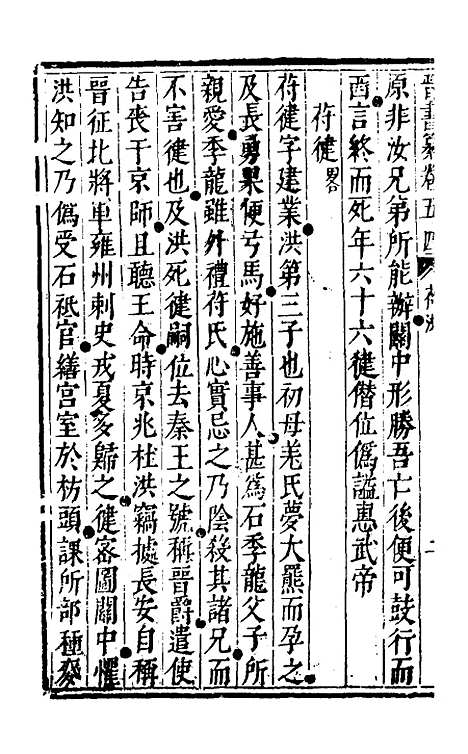 晉書纂卷五四 苻洪
原非汝兄弟所能辦關中形勝吾亡後便可鼓行而
西言終而死年六十六健僭位僞謚惠武帝
苻健畧
苻健字建業洪第三子也初母羌氏夢大羆而孕之
及長勇果便弓馬好施善事人甚爲石季龍父子所
親愛季龍雖外禮苻氏心實忌之乃陰殺其諸兄而
不害健也及洪死健嗣位去秦王之號稱晉爵遣使
告喪于京師且聽王命時京兆杜洪竊據長安自稱
晉征北將軍雍州刺史戎夏多歸之健密圖關中懼
洪知之乃僞受石祗官繕宫室於枋頭課所部種麥